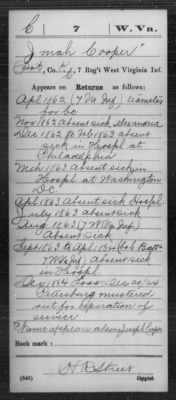 C 7 W. Va.
Jonah Cooper
Pvt, Co. K, 7 Reg't West Virginia Inf.
Appears on Returns as follows:
Apl 1862 (7 Va Inf) teamster
for Co
Nov 1862 absent sick Alexandria
Dec 1862 to Feb 1863 absent
sick in Hospl at
Philadelphia
Mch 1863 absent sick in
Hospl at Washington
D.C.
Apl 1863 absent sick Hospl
July 1863 absent sick
Aug 1863 (7 W Va Inf)
Absent sick
Sept 1863 to Apl 1864
7 W Va Inf) absent sick
in Hospl.
Dec 1864 Loss Dec 20/64
Petersburg mustered
out for expiration of
service
Name appears also Joseph Cooper
Book mark:
H R Street
(546) Copyist.